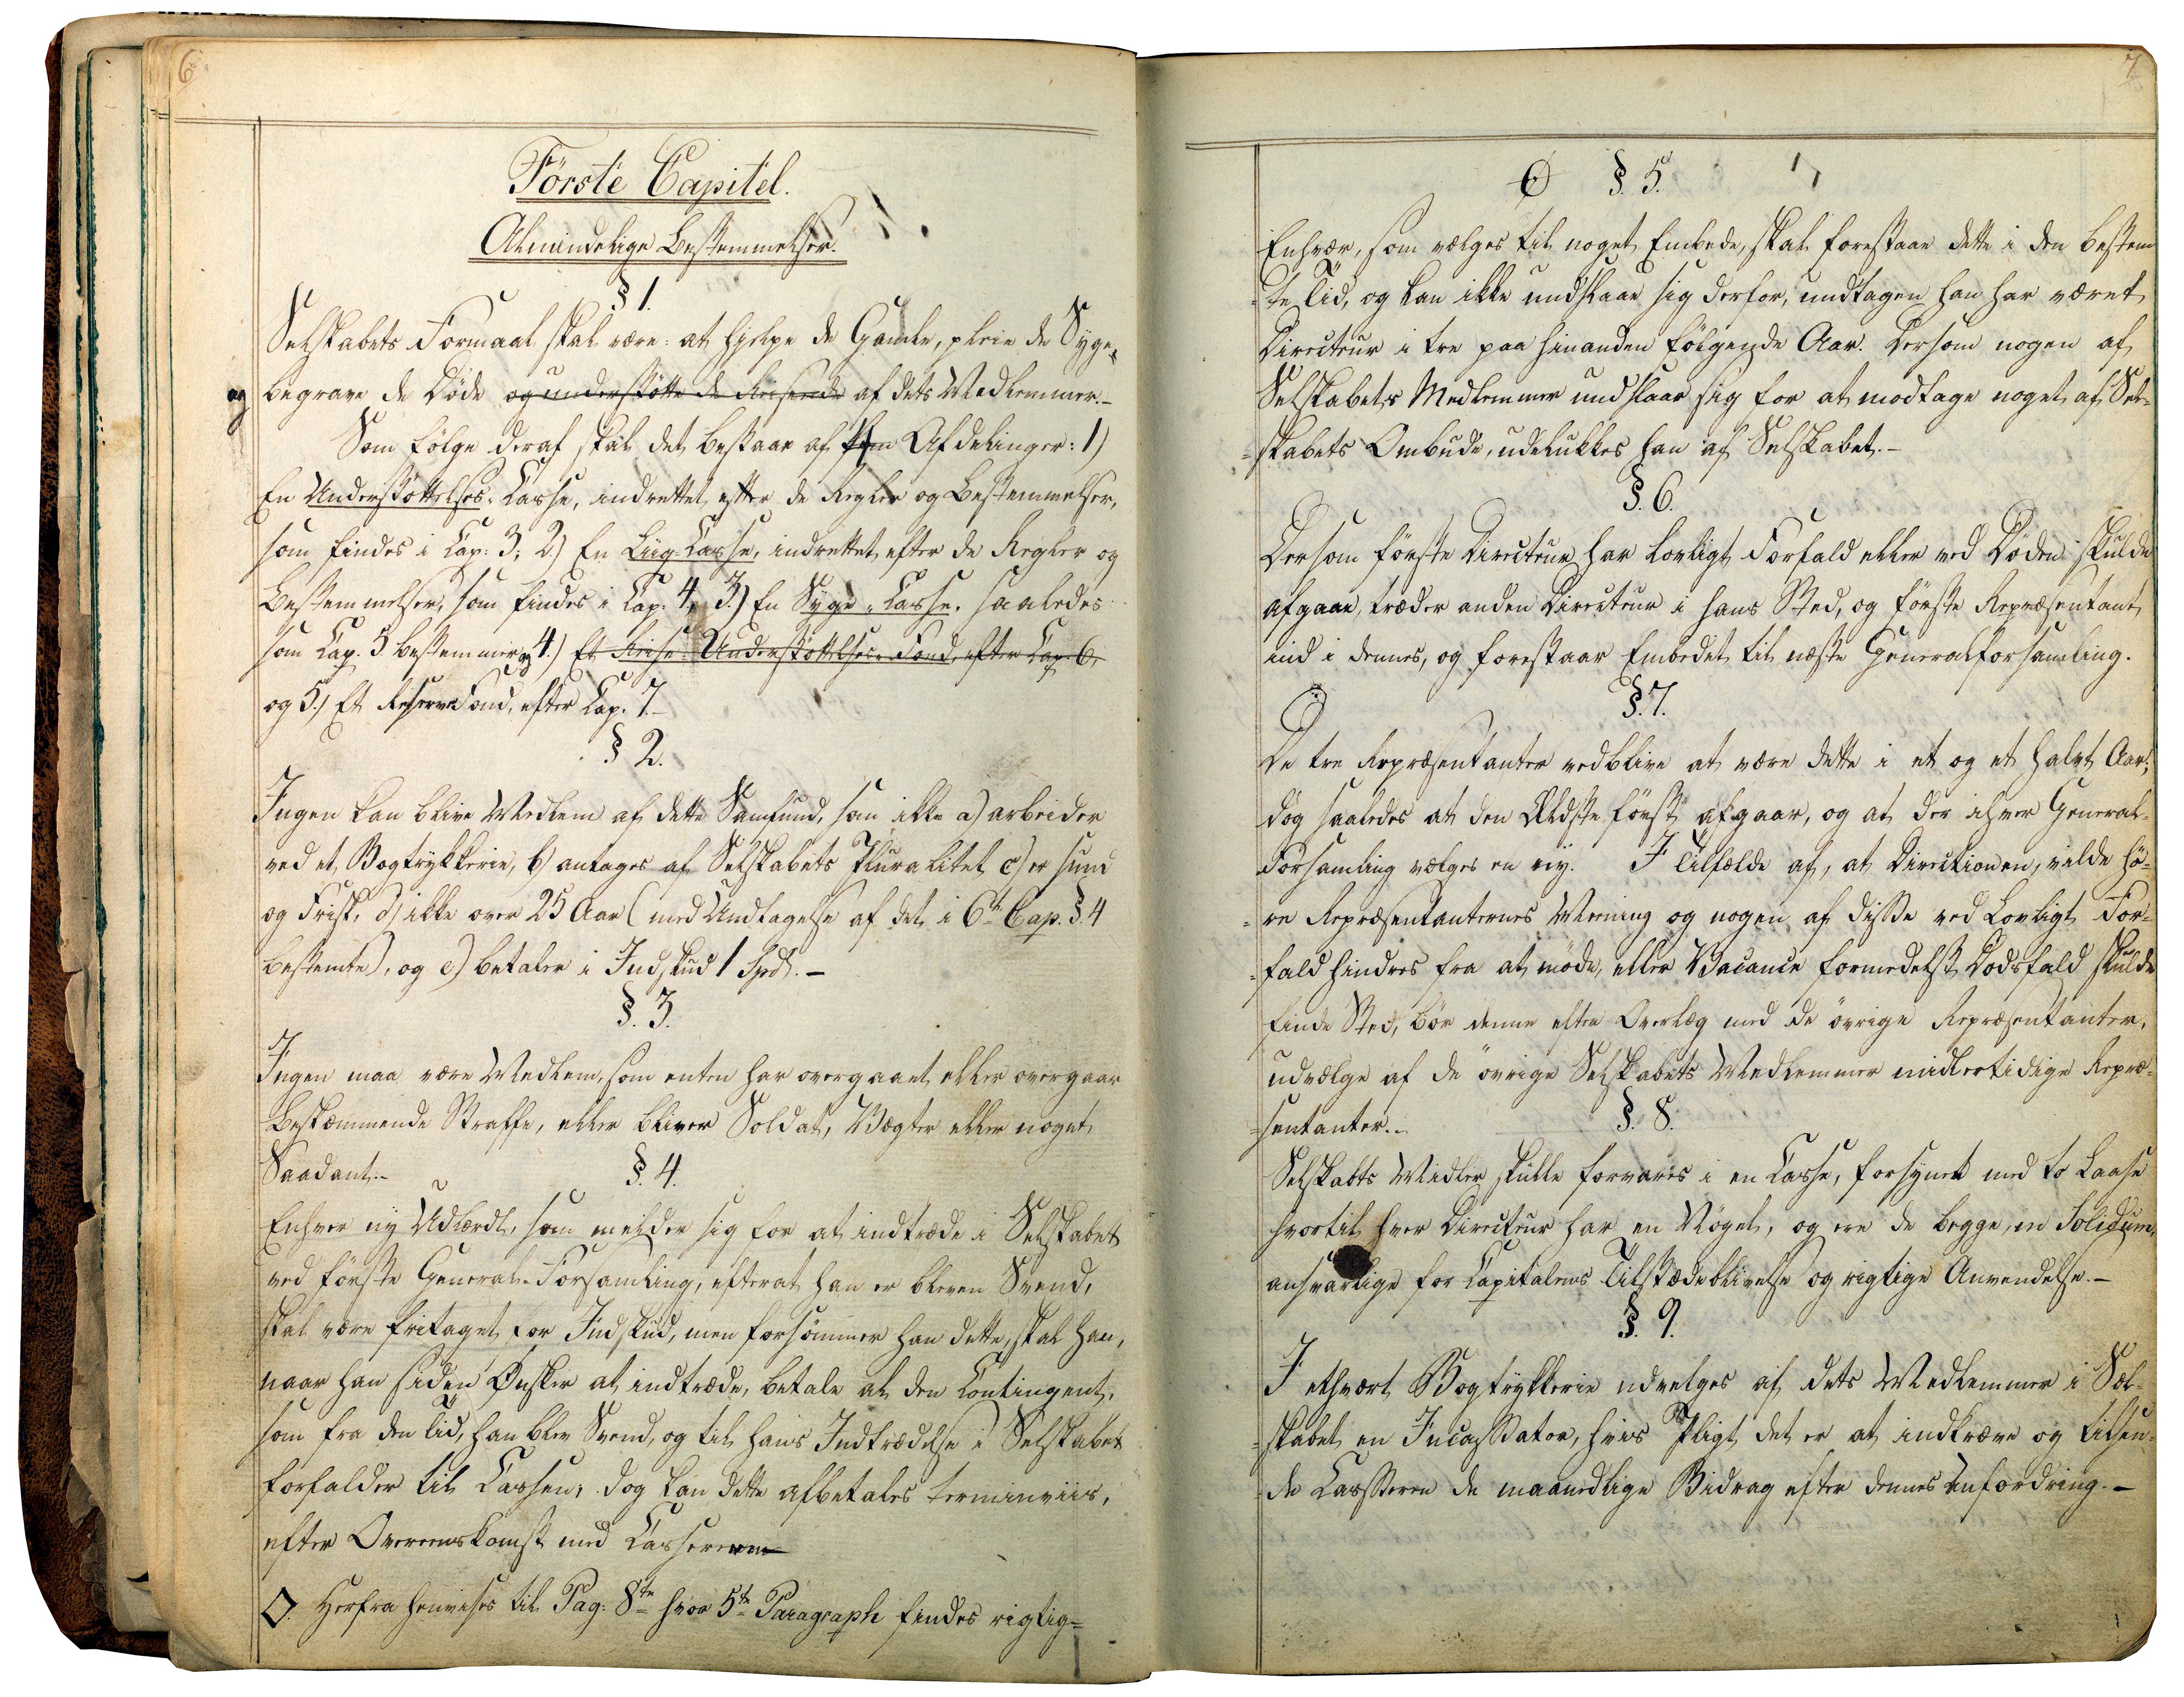 6
Förste Capitel.
Almindelige Bestemmelser.
§ 1.
Selskabets Formaal skal være: at hjelpe de Gamle, pleie de Syge,
og begrave de Døde og understötte de Reisende af dets Medlemmer.-
Som fölge deraf skal det bestaae af fem Afdelinger: 1)
En Understöttelses-Casse, indrettet efter de Regler og Bestemmelser,
som findes i Cap: 3; 2.) En Liig-Casse, indrettet efter de Regler og
Bestemmelser, som findes i Cap. 4, 3.) En Syge-Casse, saaledes
som Cap. 5 bestemmer, og 4.) Et Reise-Understöttelses-Fond, efter Cap. 6,
og 5.) Et Reserve Fond, efter Cap. 7.-
§ 2.
Ingen kan blive Medlem af dette Samfund, som ikke a) arbeider
ved et Bogtrykkerie, b) antages af Selskabets Pluralitet c) er sund
og frisk, d) ikke over 25 Aar (med Undtagelse af det i 6te Cap. §. 4
bestemte), og e) betaler i Indskud 1 Spd.-
§. 3.
Ingen maa være Medlem, som enten har overgaaet eller overgaar
beskæmmende Straffe, eller bliver Soldat, Vægter eller noget
Saadant.-
§. 4.
Enhver ny Udlærdt, som melder sig for at indtræde i Selskabet
ved förste General-Forsamling, efterat han er bleven Svend,
skal være fritaget for Indskud, men forsömmer han dette, skal han,
naar han siden Ønsker at indtræde, betale al den Contingent,
som fra den Tid, han blev Svend, og til hans Indtrædelse i Selskabet
forfalder til Cassen; dog kan dette afbetales terminviis,
efter Overeenskomst med Casseren
O. Herfra henvises til Pag: 8te hvor 5te Paragraph findes rigtig=
7
O §. 5.
Enhver, som vælges til noget Embede, skal forestaae dette i den bestem
=te Tid, og kan ikke undslaae sig derfor, undtagen han har været
Directeur i tre paa hinanden fölgende Aar. Dersom nogen af
Selskabets Medlemmer undslaar sig for at modtage noget af Sel=
=skabets Ombude, udelukkes han af Selskabet.-
§. 6.
Dersom förste Directeur har lovligt Forfald eller ved Døden skulde
afgaae, træder anden Directeur i hans Sted, og förste Repræsentant
ind i dennes, og forestaar Embedet til næste Generalforsamling.
§. 7.
De tre Repræsentanter vedblive at være dette i et og et halvt Aar;
dog saaledes at den Ældste först afgaar, og at der ihver General-
Forsamling vælges en ny. I Tilfælde af, at Directionen, vilde hö=
=re Repræsentanternes Mening og nogen af disse ved Lovligt For=
=fald hindres fra at möde, eller Vacance formedelst Dødsfald skulde
finde Sted, bör denne efter Overlæg med de övrige Repræsentanter,
udvælge af de övrige Selskabets Medlemmer midlertidige Repræ=
=sentanter.-
§. 8.
Selskabts Midler skulle forvares i en Casse, forsynet med to Laase
hvortil hver Directeur har en Nögel, og ere de begge, in Solidum,
ansvarlige for Capitalens Tilstædeblivelse og rigtige Anvendelse.-
§. 9.
I ethvært Bogtrykkerie udvelges af dets Medlemmer i Sæl=
=skabet en Incassator, hvis Pligt det er at indkræve og tilsen=
=de Casseren de maanedlige Bidrag efter dennes Anfordring.-